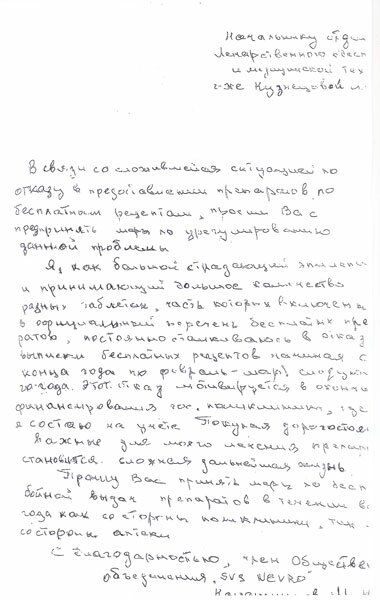 Начальнику отде
Лекарственного обесп
и медицинской тех
г-же Кузнецовой
В связи со сложившейся ситуацией по
отказу в предоставлении препаратов по
бесплатным рецептам, просим Вас
предпринять меры по урегулированию
данной проблемы
Я, как больной страдающий эпилепси
и принимающий большое количество
разных таблеток, часть которых включены
в официальный перечень бесплатных пре
ратов, постоянно сталкиваюсь в отказ
выписки бесплатных рецептов начиная с
конца года по февраль-март следующ
го года. Этот отказ мотивируется в оконча
финансирования гос. поликлиники, где
я состою на учёте. Покупая дорогостоя
важные для моего лечения препара
становится сложной дальнейшая жизнь.
Прошу Вас принять меры по бесп
бойной выдач препаратов в течении в
года как со стороны поликлиники, так
со стороны аптеки
С благодарностью, член Обществен
объединения „SVS NEVRO"